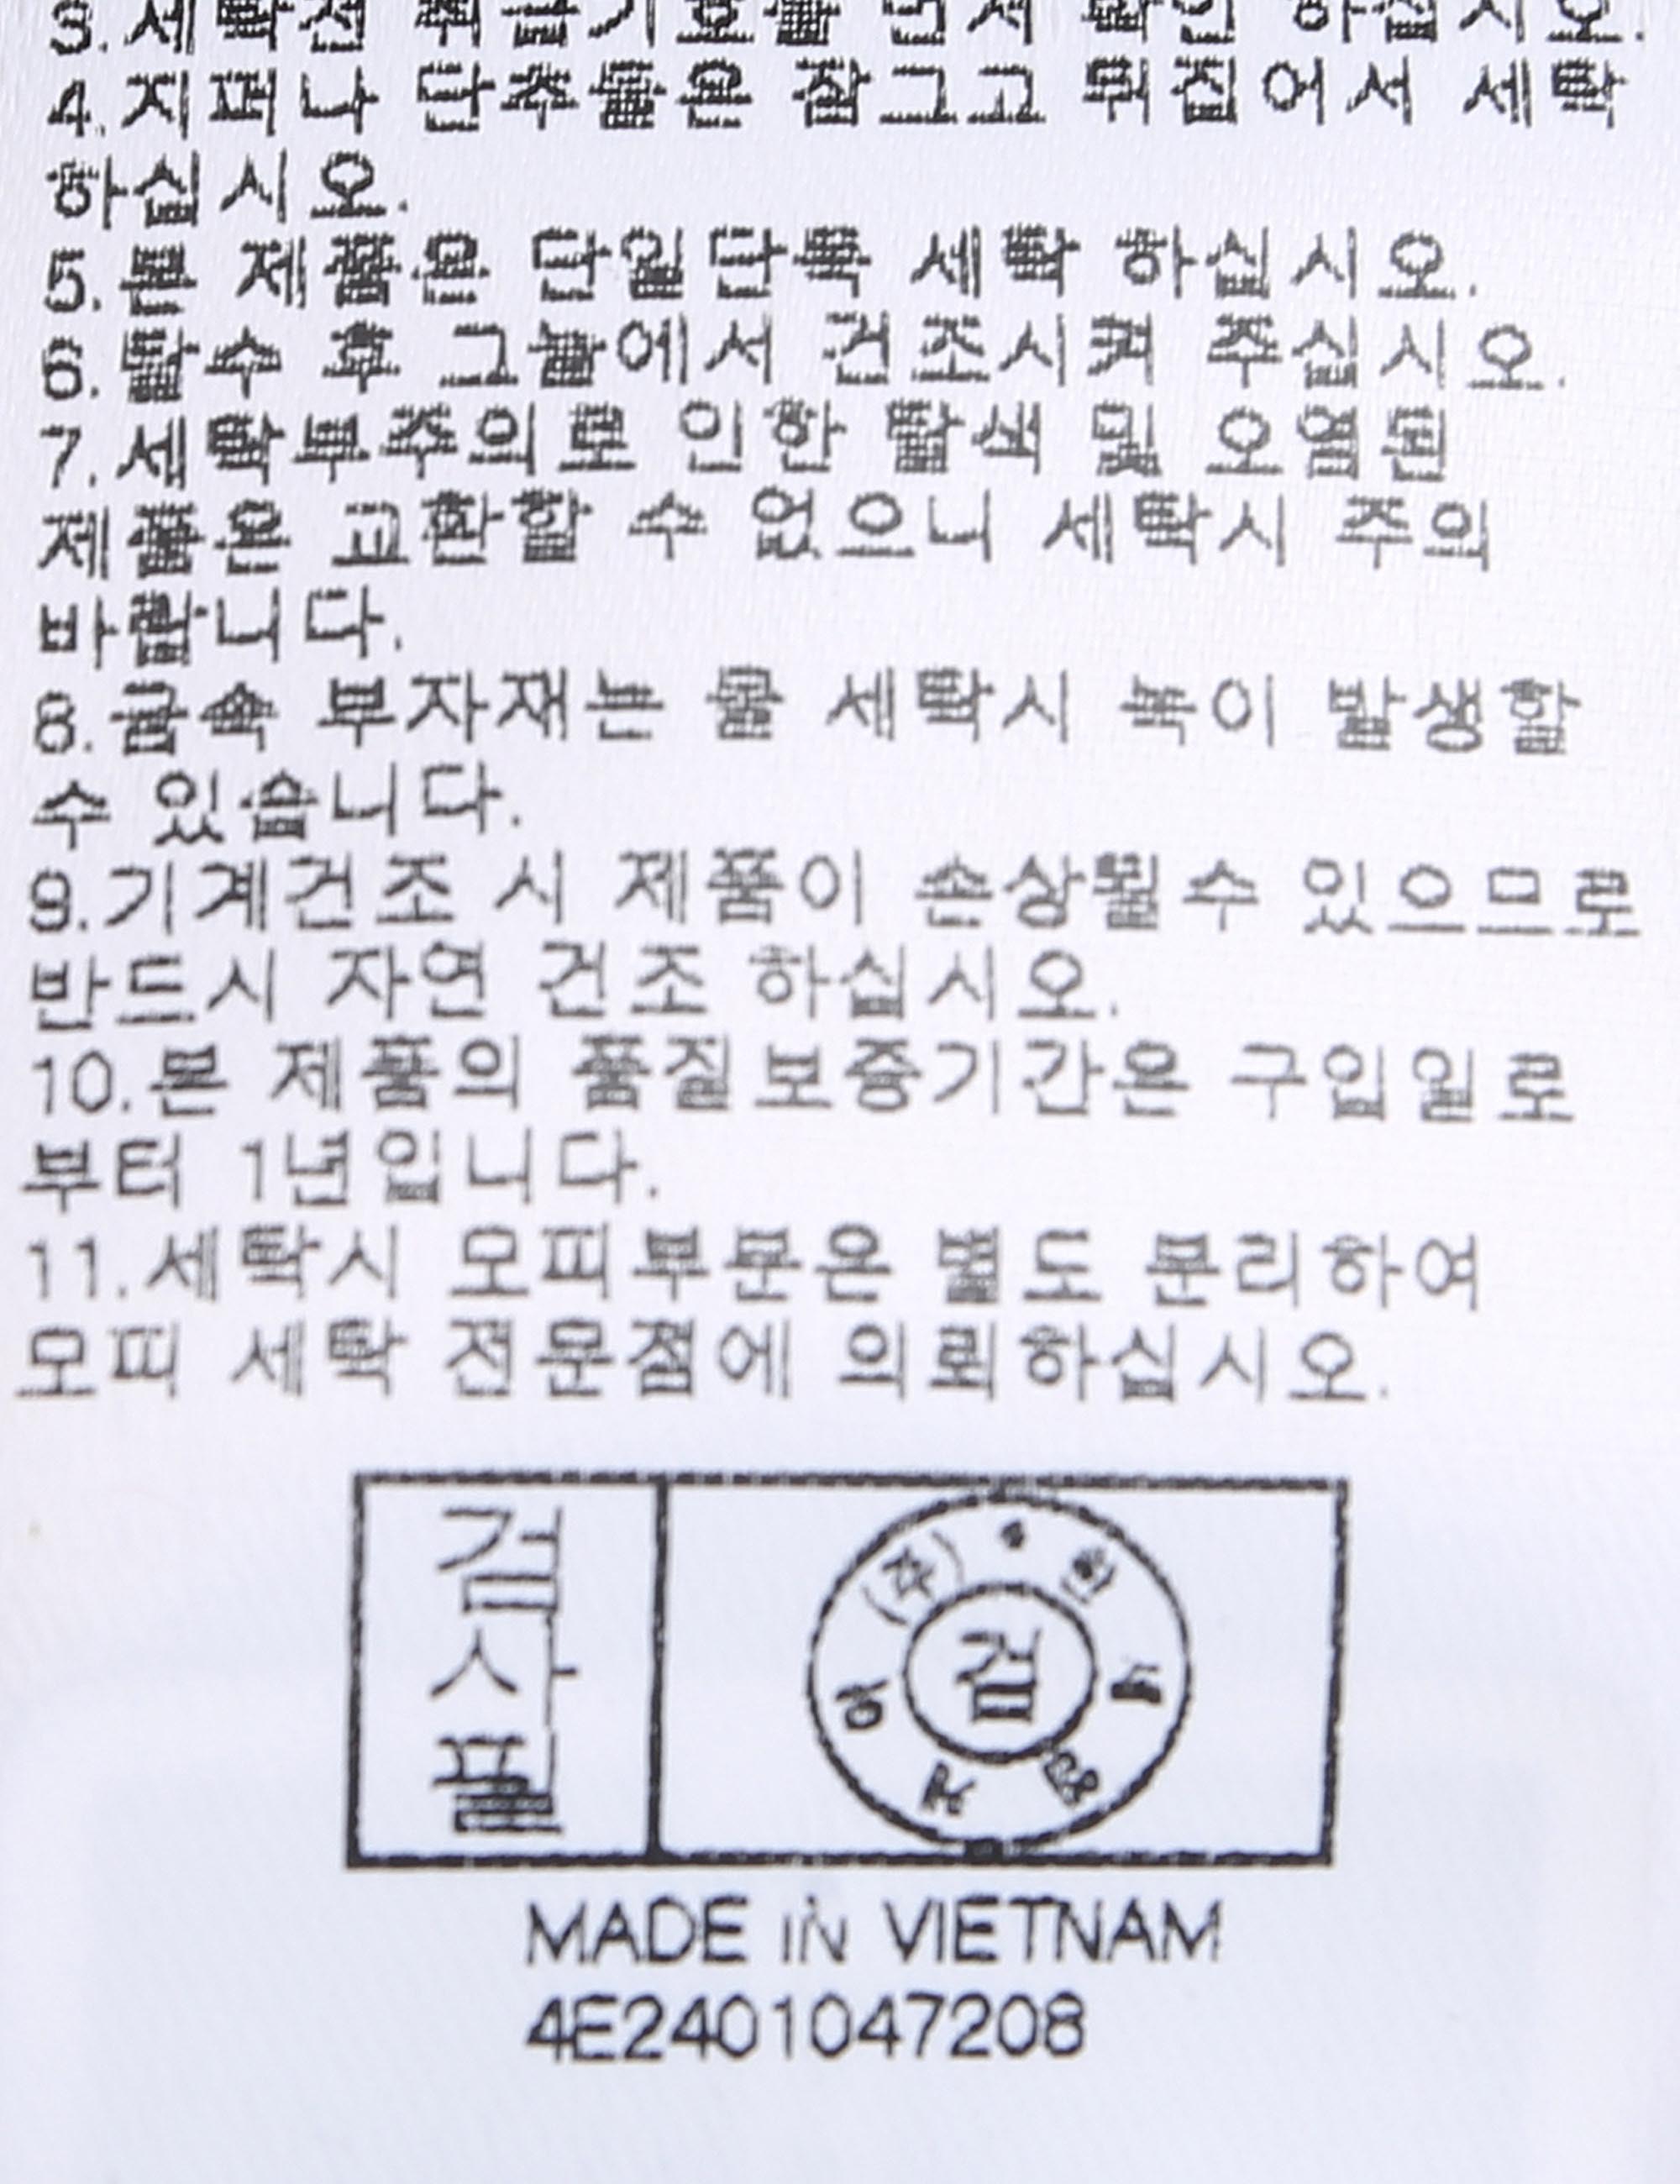 3.세탁전 취급기호를 먼저 확인 하십시오.
4.지퍼나 단추들은 잠그고 뒤집어서 세탁
하십시오.
5.본 제품은 단일단독 세탁 하십시오.
6.탈수 후 그늘에서 건조시켜 주십시오.
7.세탁부주의로 인한 탈색 및 오염된
제품은 교환할 수 없으니 세탁시 주의
바랍니다.
8.금속 부자재는 물 세탁시 녹이 발생할
수 있습니다.
9.기계건조 시 제품이 손상될수 있으므로
반드시 자연 건조 하십시오.
10.본 제품의 품질보증기간은 구입일로
부터 1년입니다.
11.세탁시 모피부분은 별도 분리하여
모피 세탁 전문점에 의뢰하십시오.
검사필
(주)
검
MADE IN VIETNAM
4E2401047208